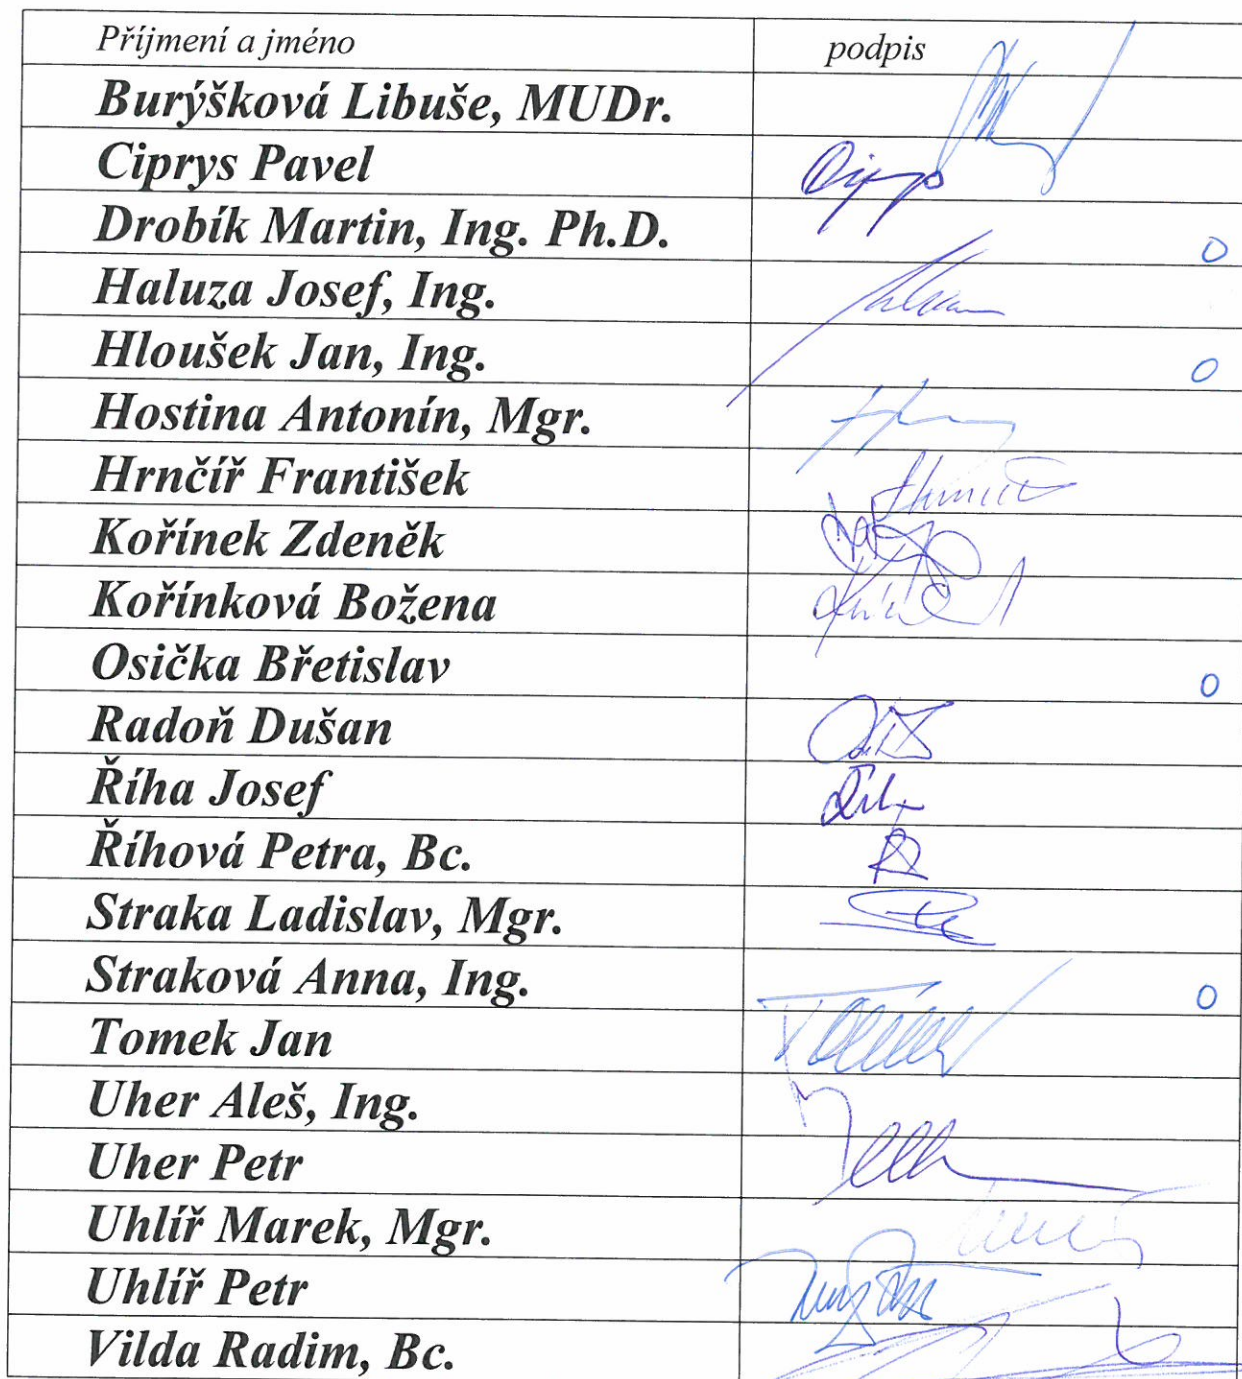 Příjmení a jméno podpis
Burýšková Libuše, MUDr.
Ciprys Pavel
Drobík Martin, Ing. Ph.D. 0
Haluza Josef, Ing.
Hloušek Jan, Ing. 0
Hostina Antonín, Mgr.
Hrnčíř František
Kořínek Zdeněk
Kořínková Božena
Osička Břetislav 0
Radoň Dušan
Říha Josef
Říhová Petra, Bc.
Straka Ladislav, Mgr.
Straková Anna, Ing. 0
Tomek Jan
Uher Aleš, Ing.
Uher Petr
Uhlíř Marek, Mgr.
Uhlíř Petr
Vilda Radim, Bc.